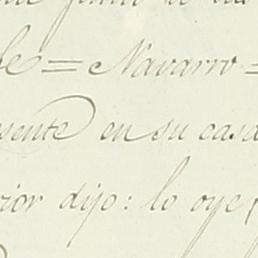 le = Navarro =
esente en su casa
rior dijo: lo oye